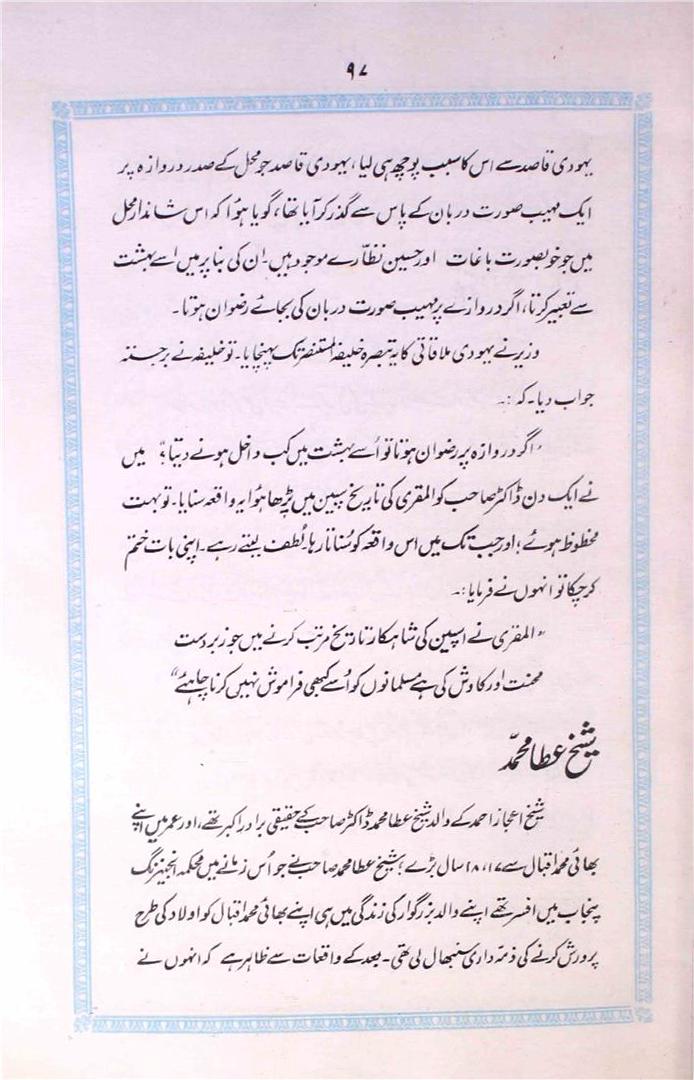 ۹۷
یہودی قاصد سے اس کا سبب پوچھ ہی لیا، یہودی قاصد جو محل کے صدر دروازہ پر
ایک مہیب صورت دربان کے پاس سے گذر کر آیا تھا، گویا ہؤا کہ اس شاندار محل
میں جو خوبصورت باغات اور حسین نظارے موجود ہیں۔ ان کی بنا پر میں اسے بہشت
سے تعبیر کرتا، اگر دروازے پر مہیب صورت دربان کی بجائے رضوان ہوتا۔
وزیر نے یہودی ملاقاتی کا یہ تبصرہ خلیفہ المستنصر تک پہنچایا۔ تو خلیفہ نے برجستہ
جواب دیا۔ کہ :۔
"اگر دروازہ پر رضوان ہوتا تو اُسے بہشت میں کب داخل ہونے دیتا؟" میں
نے ایک دن ڈاکٹر صاحب کو المقری کی تاریخ سپین میں پڑھا ہؤا یہ واقعہ سنایا۔ تو بہت
محظوظ ہوئے؛ اور جب تک میں اس واقعہ کو سُناتا رہا۔ لُطف لیتے رہے۔ اپنی بات ختم
کر چکا تو انہوں نے فرمایا :۔
"المقری نے اسپین کی شاہکار تاریخ مرتب کرنے میں جو زبردست
محنت اور کاوش کی ہے مسلمانوں کو اُسے کبھی فراموش نہیں کرنا چاہئے"
شیخ عطا محمّد
شیخ اعجاز احمد کے والد شیخ عطا محمد ڈاکٹر صاحب کے حقیقی برادر اکبر تھے، اور عمر میں اپنے
بھائی محمد اقبال سے ۱۷، ۱۸ سال بڑے؛ شیخ عطا محمد صاحب نے جو اُس زمانے میں محکمہ انجینئرنگ
پنجاب میں افسر تھے اپنے والد بزرگوار کی زندگی میں ہی اپنے بھائی محمد اقبال کو اولاد کی طرح
پرورش کرنے کی ذمہ داری سنبھال لی تھی۔ بعد کے واقعات سے ظاہر ہے کہ انہوں نے